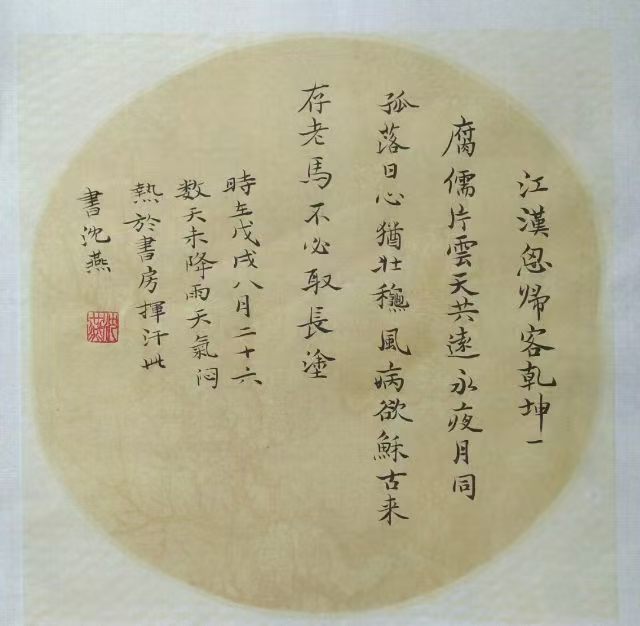 江漢思帰客乾坤一
腐儒片雲天共遠永夜月同
孤落日心猶壯穐風病欲穌古来
存老馬不必取長塗
時在戊戌八月二十六
数天未降雨天氣闷
熱於書房揮汗此
書沈燕